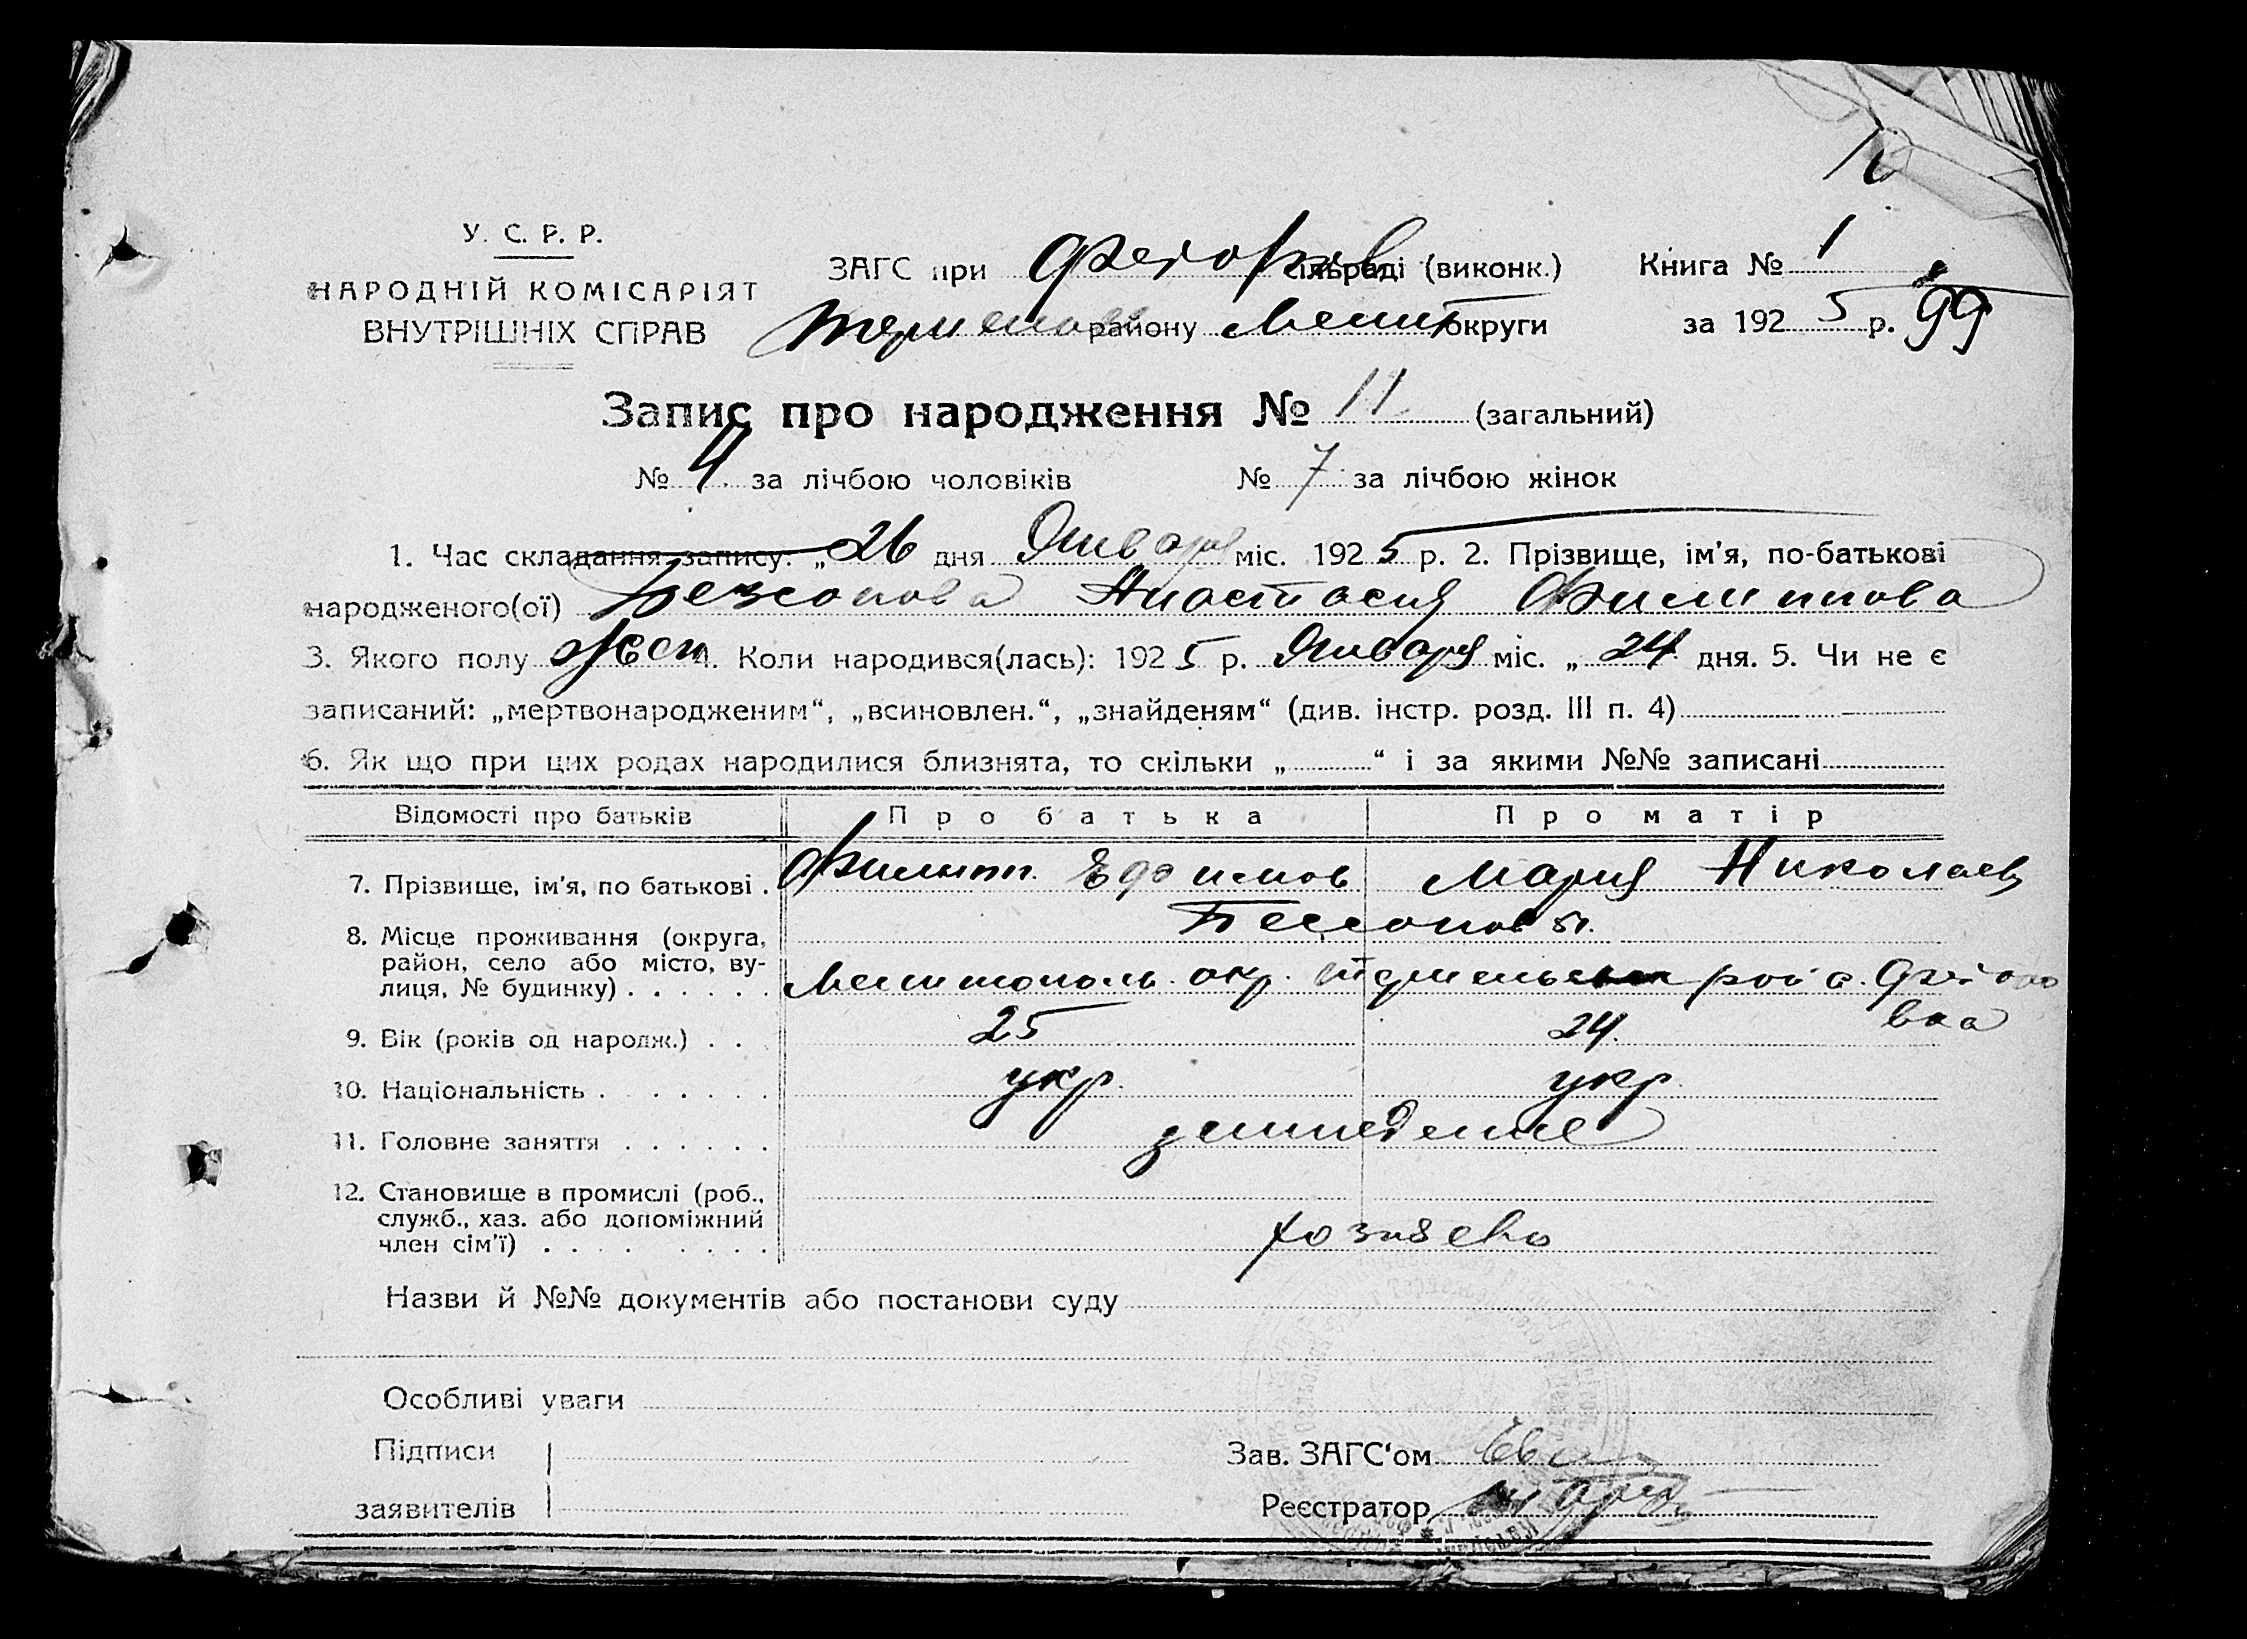 У. С. Р. Р.
НАРОДНІЙ КОМІСАРІЯТ
ВНУТРІШНІХ СПРАВ
ЗАГС при сільраді (виконк.)
району Мелит округи
Книга № 1
за 1925 р. 99
Запис про народження № 11 (загальний)
№ 4 за лічбою чоловіків № 7 за лічбою жінок
1. Час складання запису: „26 дня Января міс. 1925 р. 2. Прізвище, ім'я, по-батькові
народженого(ої) Безсонова Анастасия Филиппова
3. Якого полу жен 4. Коли народився(лась): 1925 р. Января міс. „ 24 дня. 5. Чи не є
записаний: „мертвонародженим“, „всиновлен.“, „знайденям“ (див. інстр. розд. III п. 4)
6. Як що при цих родах народилися близнята, то скільки „ “ і за якими №№ записані
Відомості про батьків Про батька Про матір
7. Прізвище, ім'я, по батькові . Филипп Мария Николаев
Бессоновы.
8. Місце проживання (округа,
район, село або місто, ву-
лиця, № будинку) . . . . . . Мелитополь. окр. рой с.
9. Вік (років од нарояж.) . . 25 24.
10. Національність . . . . . . укр. укр.
11. Головне заняття . . . . . .
12. Становище в промислі (роб.,
служб., хаз. або допоміжний
член сім'ї) . . . . . . . .
Назви й №№ документів або постанови суду
Особливі уваги
Підписи
заявителів
Зав. ЗАГС‘ом
Реєстратор